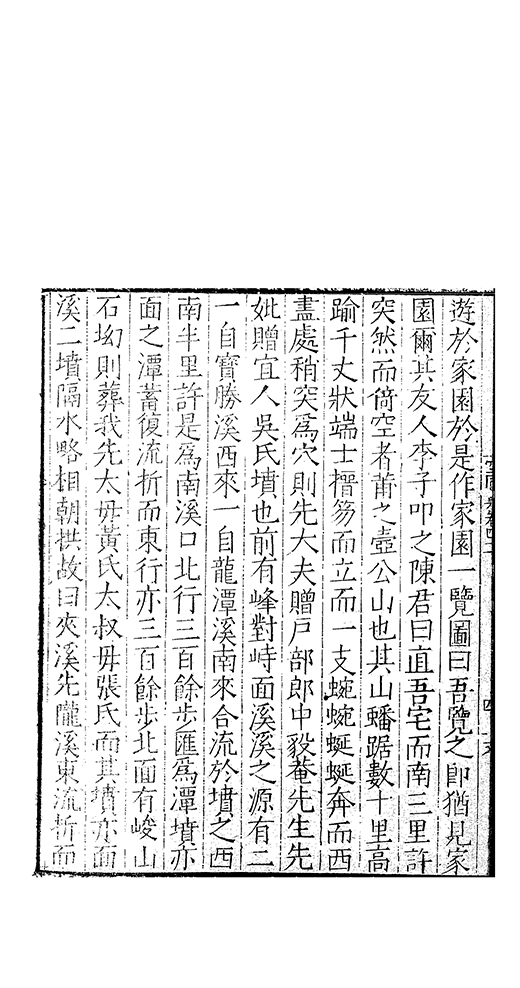 遊於家園於是作家園一覽圖曰吾覽之卽猶見家
園爾其友人李子叩之陳君曰直吾宅而南三里許
突然而倚空者莆之壺公山也其山蟠踞數十里高
踰千丈狀端士搢笏而立而一支蜿蜿蜒蜒奔而西
盡處稍突爲穴則先大夫贈戶部郎中毅菴先生先
妣贈宜人吳氏墳也前有峰對峙面溪溪之源有二
一自寶勝溪西來一自龍潭溪南來合流於墳之西
南半里許是爲南溪口北行三百餘步匯爲潭墳亦
面之潭蓄復流折而東行亦三百餘步北面有峻山
石坳則葬我先太毋黃氏太叔毋張氏而其墳亦面
溪二墳隔水略相朝拱故曰夾溪先隴溪東流折而